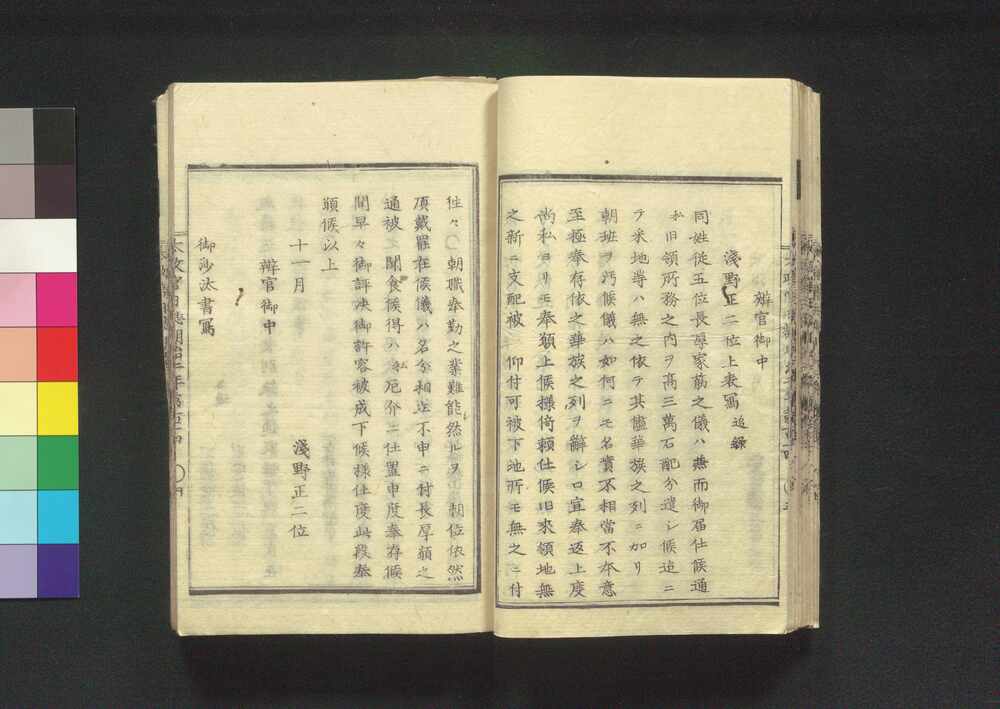 辨官御中
淺野正二位上表寫 追録
同姓従五位長厚家筋之儀ハ兼而御届仕候通
私旧領所務之内ヲ高三萬石配分遣シ候迄ニ
テ采地等ハ無之依テ其儘華族之列ニ加リ
朝班ヲ汚候儀ハ如何ニモ名實不相當不本意
至極奉存依之華族之列ヲ辭シ口宣奉返上度
尚私ヨリモ奉願上候様倚頼仕候旧來領地無
之新ニ支配被 仰付可被下地所モ無之ニ付
往々 朝職奉勤之業難能然ルヲ 朝位依然
頂戴罷在候儀ハ名分相立不申ニ付長厚願之
通被 聞食候得ハ私厄介ニ仕置申度奉存候
間早々御評決御許容被成下候様仕度此段奉
願候以上
十一月 淺野正二位
辨官御中
御沙汰書寫
太政官日誌明治二年第百十四